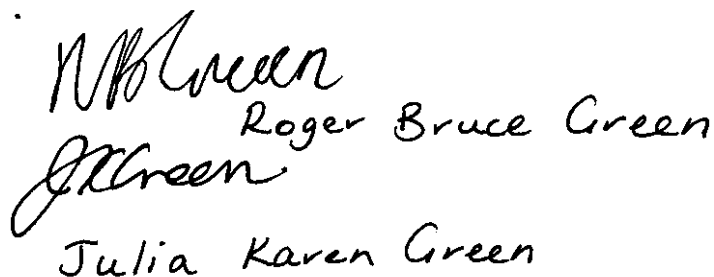 RBGreen
Roger Bruce Green
JKGreen
Julia Karen Green